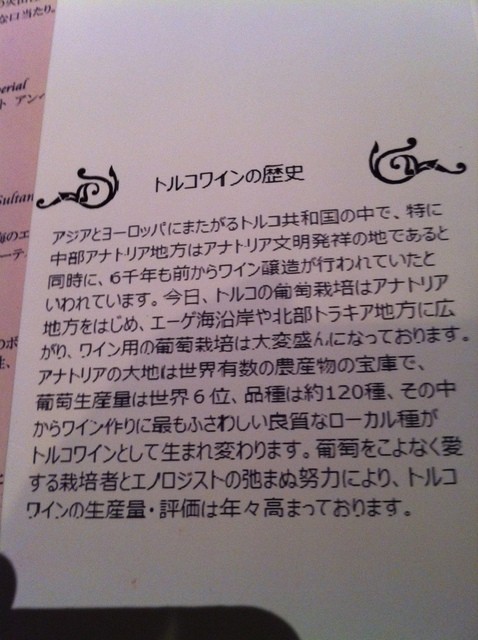 な口当たり。
erial
ト アン
Sultan
トルコワインの歴史
アジアとヨーロッパにまたがるトルコ共和国の中で、特に
中部アナトリア地方はアナトリア文明発祥の地であると
同時に、6千年も前からワイン醸造が行われていたと
いわれています。今日、トルコの葡萄栽培はアナトリア
地方をはじめ、エーゲ海沿岸や北部トラキア地方に広
がり、ワイン用の葡萄栽培は大変盛んになっております。
アナトリアの大地は世界有数の農産物の宝庫で、
葡萄生産量は世界６位、品種は約120種、その中
からワイン作りに最もふさわしい良質なローカル種が
トルコワインとして生まれ変わります。葡萄をこよなく愛
する栽培者とエノロジストの弛まぬ努力により、トルコ
ワインの生産量・評価は年々高まっております。